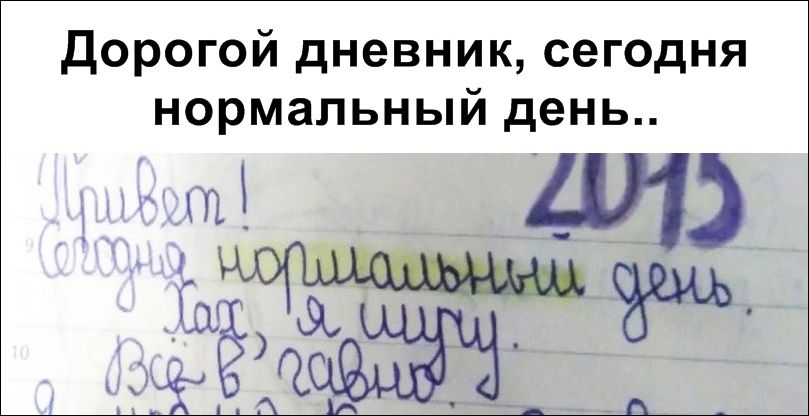 Дорогой дневник, сегодня
нормальный день..
Привет!
2015
9
Сегодня нормальный день.
Хах, я шучу.
10
Всё в гавно